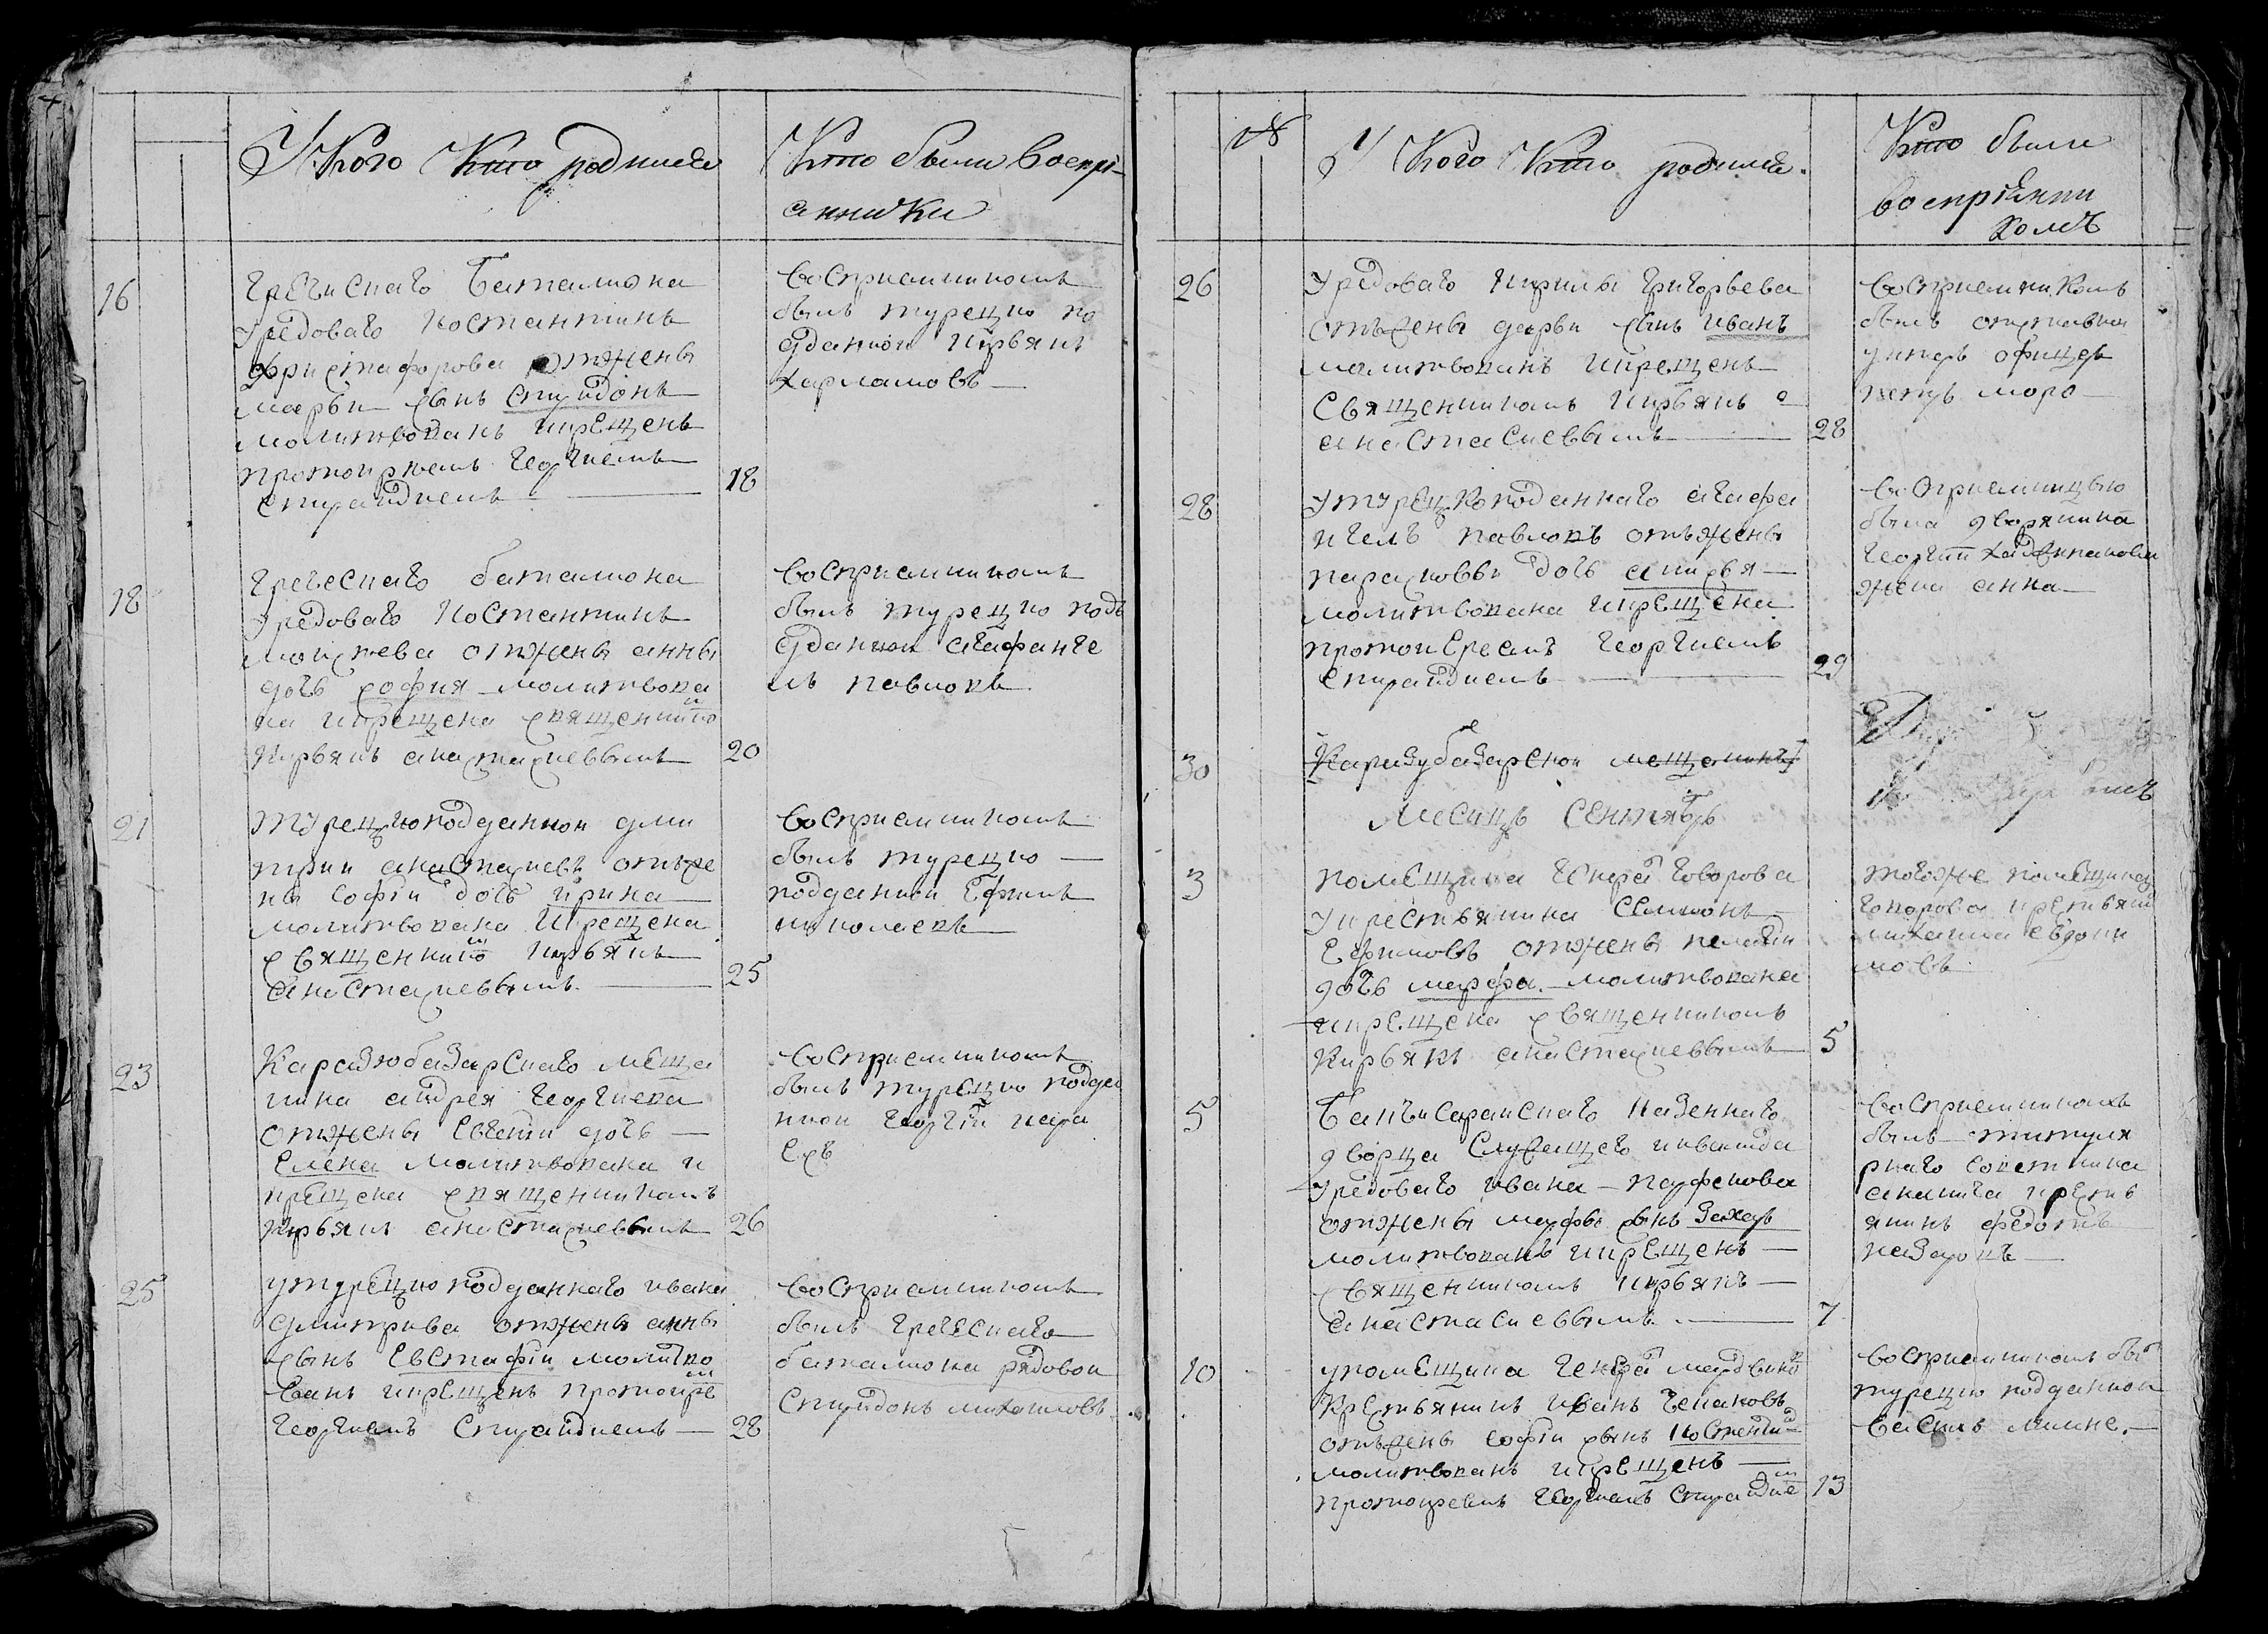 У Кого Кто родился
Кто были воспрі-
анники
16
Греческаго Баталиона
Урядоваго Костантинъ
Христафорова отжены
марьи сынъ спиридонъ
молитвованъ икрещенъ
протоиреемъ Георгиемъ
спирандиемъ
18
восприемникомъ
былъ турецко по
дданной Кирьякъ
харламовъ
18
Греческаго баталиона
Урядоваго Костантинъ
отжены анны
дочь софия молитвова
на икрещена священнико
Кирьякъ анастасиевымъ
20
восприемникомъ
былъ турецко подъ
дданной агафанге
лъ павловъ
21
Турецкоподданнои дми
трии анастасиевъ отъже
ны софіи дочь ирина
молитвована икрещена
священнико кирьякъ
анастасиевымъ
25
восприемникомъ
былъ турецко
подданной Ефимъ
николаевъ
23
Карасюбазарскаго меща
нина андрея Георгиева
отжены Евгении дочь
Елена молитвована и
крещена священникомъ
Кирьякъ анастасиевымъ
26
восприемникомъ
былъ турецко поддан
нной Георгіи
25
утурецко подданнаго ивана
дмитрива отжены анны
сынъ Евстафіи молитво
ванъ икрещенъ протоире
Георгиемъ Спирандиемъ
28
восприемникомъ
былъ Греческаго
баталиона рядовои
Спиридонъ михаиловъ
№
У Кого Кто родился.
Кто были
воспріемни
комъ
26
Урядоваго Кирилы Григорьева
отъжены дарьи сынъ иванъ
молитвованъ икрещенъ
Священникомъ Кирьякъ
анастасиевымъ
28
восприемникомъ
былъ отставной
унтеръ офицеръ
петръ моро
28
Утурецкоподаннаго агафа
нгелъ павловъ отъжены
парасковьи дочь
молитвована икрещена
протоиереемъ Георгиемъ
спирандиемъ
29
восприемницею
была дворянина
Георгии
жена анна
30
Карасубазарской мещанинъ
Месяцъ Сентябрь
3
помещика Генера Говорова
Укрестьянина Семионъ
Ефимовъ отжены пелагии
дочь марфа молитвована
икрещена священникомъ
Кирьякъ анастасиевымъ
5
тогоже помещика
говорова крестьянинъ
михаила евдоки
мовъ
5
Бахчисарайскаго Казеннаго
дворца Служащего инвалида
Урядоваго ивана парфенова
отжены марфы сынъ Захаръ
молитвованъ икрещенъ
священникомъ кирьякъ
анастасиевымъ
7
восприемникомъ
былъ титуля
рнаго советника
ананича крестъ
янинъ федотъ
назаровъ
10
упомещика Генера мардвино
Крестьянинъ иванъ
отъжены софіи сынъ Костенти
молитвованъ икрещенъ
протоиреемъ Георгиемъ Спирандие
13
восприемникомъ бы
турецко подданной
василь